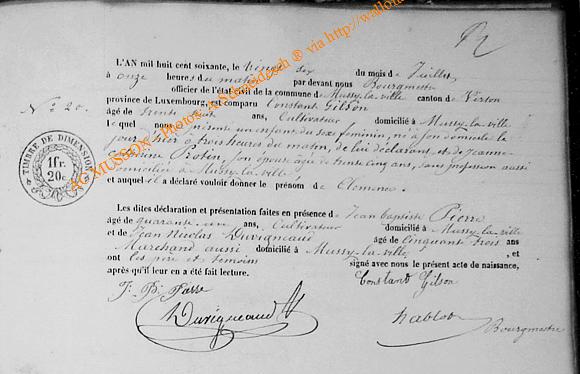 L'AN mil huit cent soixante, le vingt six du mois de Juillet
à onze heures du matin par devant nous Bourgmestre
officier de l'état civil de la commune de Mussy-la-ville canton de Virton
province de Luxembourg, est comparu Constant Gilson
N° 20.
âgé de trente huit ans, Cultivateur domicilié à Mussy-la-ville
le quel nous présente un enfant du sexe féminin, né à son domicile le
jour d'hier à trois heures du matin, de lui déclarant et de Jeanne
son épouse âgé de trente cinq ans, sans profession aussi
domiciliée à Mussy-la-ville
et auquel il a déclaré vouloir donner le prénom de Clémence.
TIMBRE DE DIMENSION
1fr.
20c.
Les dites déclaration et présentation faites en présence de Jean baptiste Pierre
âgé de quarante un ans, Cultivateur domicilié à Mussy-la-ville
et de Jean Nicolas Duvigneaud âgé de cinquante trois ans
Marchand aussi domicilié à Mussy-la-ville, et
ont les père et témoins signé avec nous le présent acte de naissance,
après qu'il leur en a été fait lecture.
Constant Gilson
J. B.
Duvigneaud
Bourgmestre